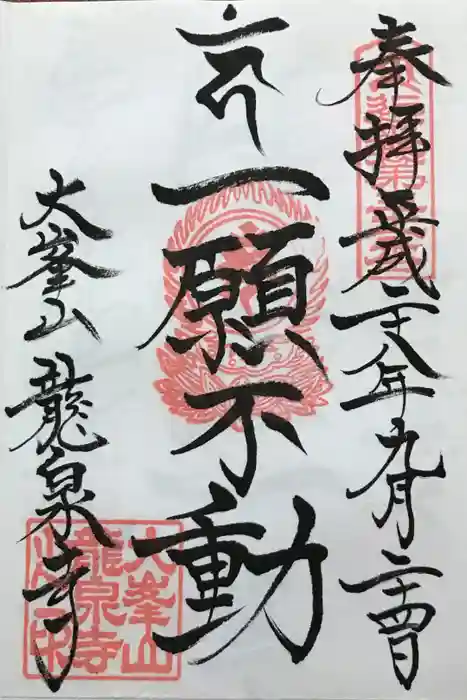 奉拝 平成二十八年九月二十四日
一願不動
大峯山 龍泉寺
大峯山
龍泉寺
之印